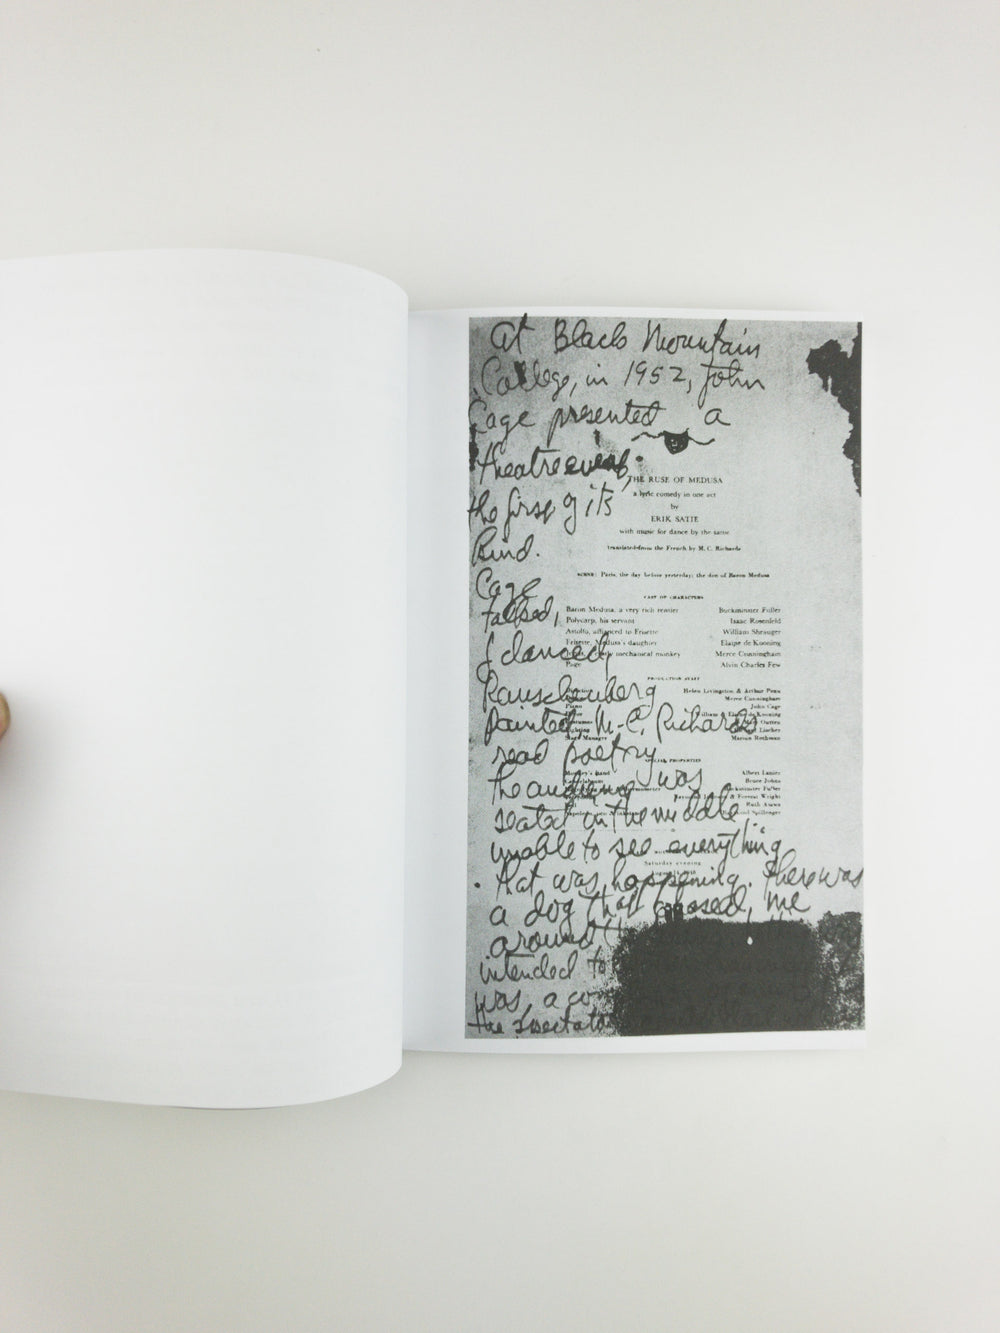 at Black Mountain
College, in 1952, John
Cage presented a
theatre event,
the first of its
kind.
Cage
talked,
I danced,
Rauschenberg
painted M.C. Richards
read poetry
the audience was
seated in the middle
unable to see everything
that was happening. there was
a dog that chased me
around
intended to
was, a
the spectator
THE RUSE OF MEDUSA
a lyric comedy in one act
by
ERIK SATIE
with music for dance by the same
translated from the French by M. C. Richards
SCENE: Paris, the day before yesterday; the den of Baron Medusa
CAST OF CHARACTERS
Baron Medusa, a very rich rentier Buckminster Fuller
Polycarp, his servant Isaac Rosenfeld
Astolfo, affianced to Frisette William Shrauger
Frisette, Medusa's daughter Elaine de Kooning
mechanical monkey Merce Cunningham
Page Alvin Charles Few
PRODUCTION STAFF
Helen Livingston & Arthur Penn
Merce Cunningham
Piano John Cage
William & Elaine de Kooning
Stage Manager
SPECIAL PROPERTIES
Albert Lanier
Bruce Johns
Buckminster Fuller
& Forrest Wright
Ruth Asawa
Saturday evening